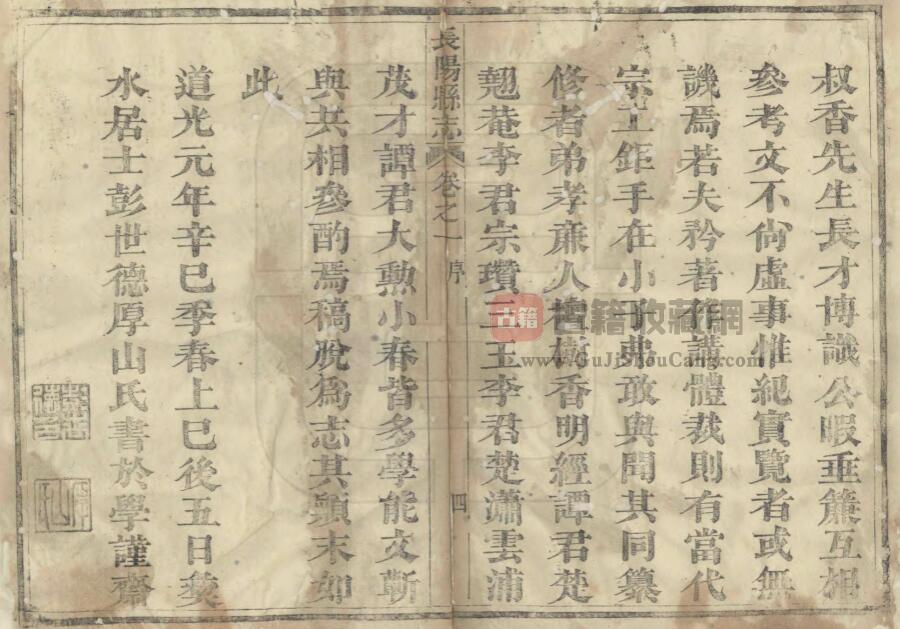 叔香先生長才博識公暇垂簾互相
參考文不尙虛事惟紀實覽者或無
譏焉若夫矜著作講體裁則有當代
宗工鉅手在小子弗敢與聞其同纂
修者弟孝亷人檀樹香明經譚君楚
翹菴李君宗瓚玉李君楚瀟雲浦
長陽縣志 卷之一 序 四
茂才譚君大勲小春皆多學能文斬
與共相參酌焉稿脫爲志其顚末如
此
道光元年辛巳季春上巳後五日葵
水居士彭世德厚山氏書於學謹齋
古籍 古籍收藏網
www.GuJiShouCang.com